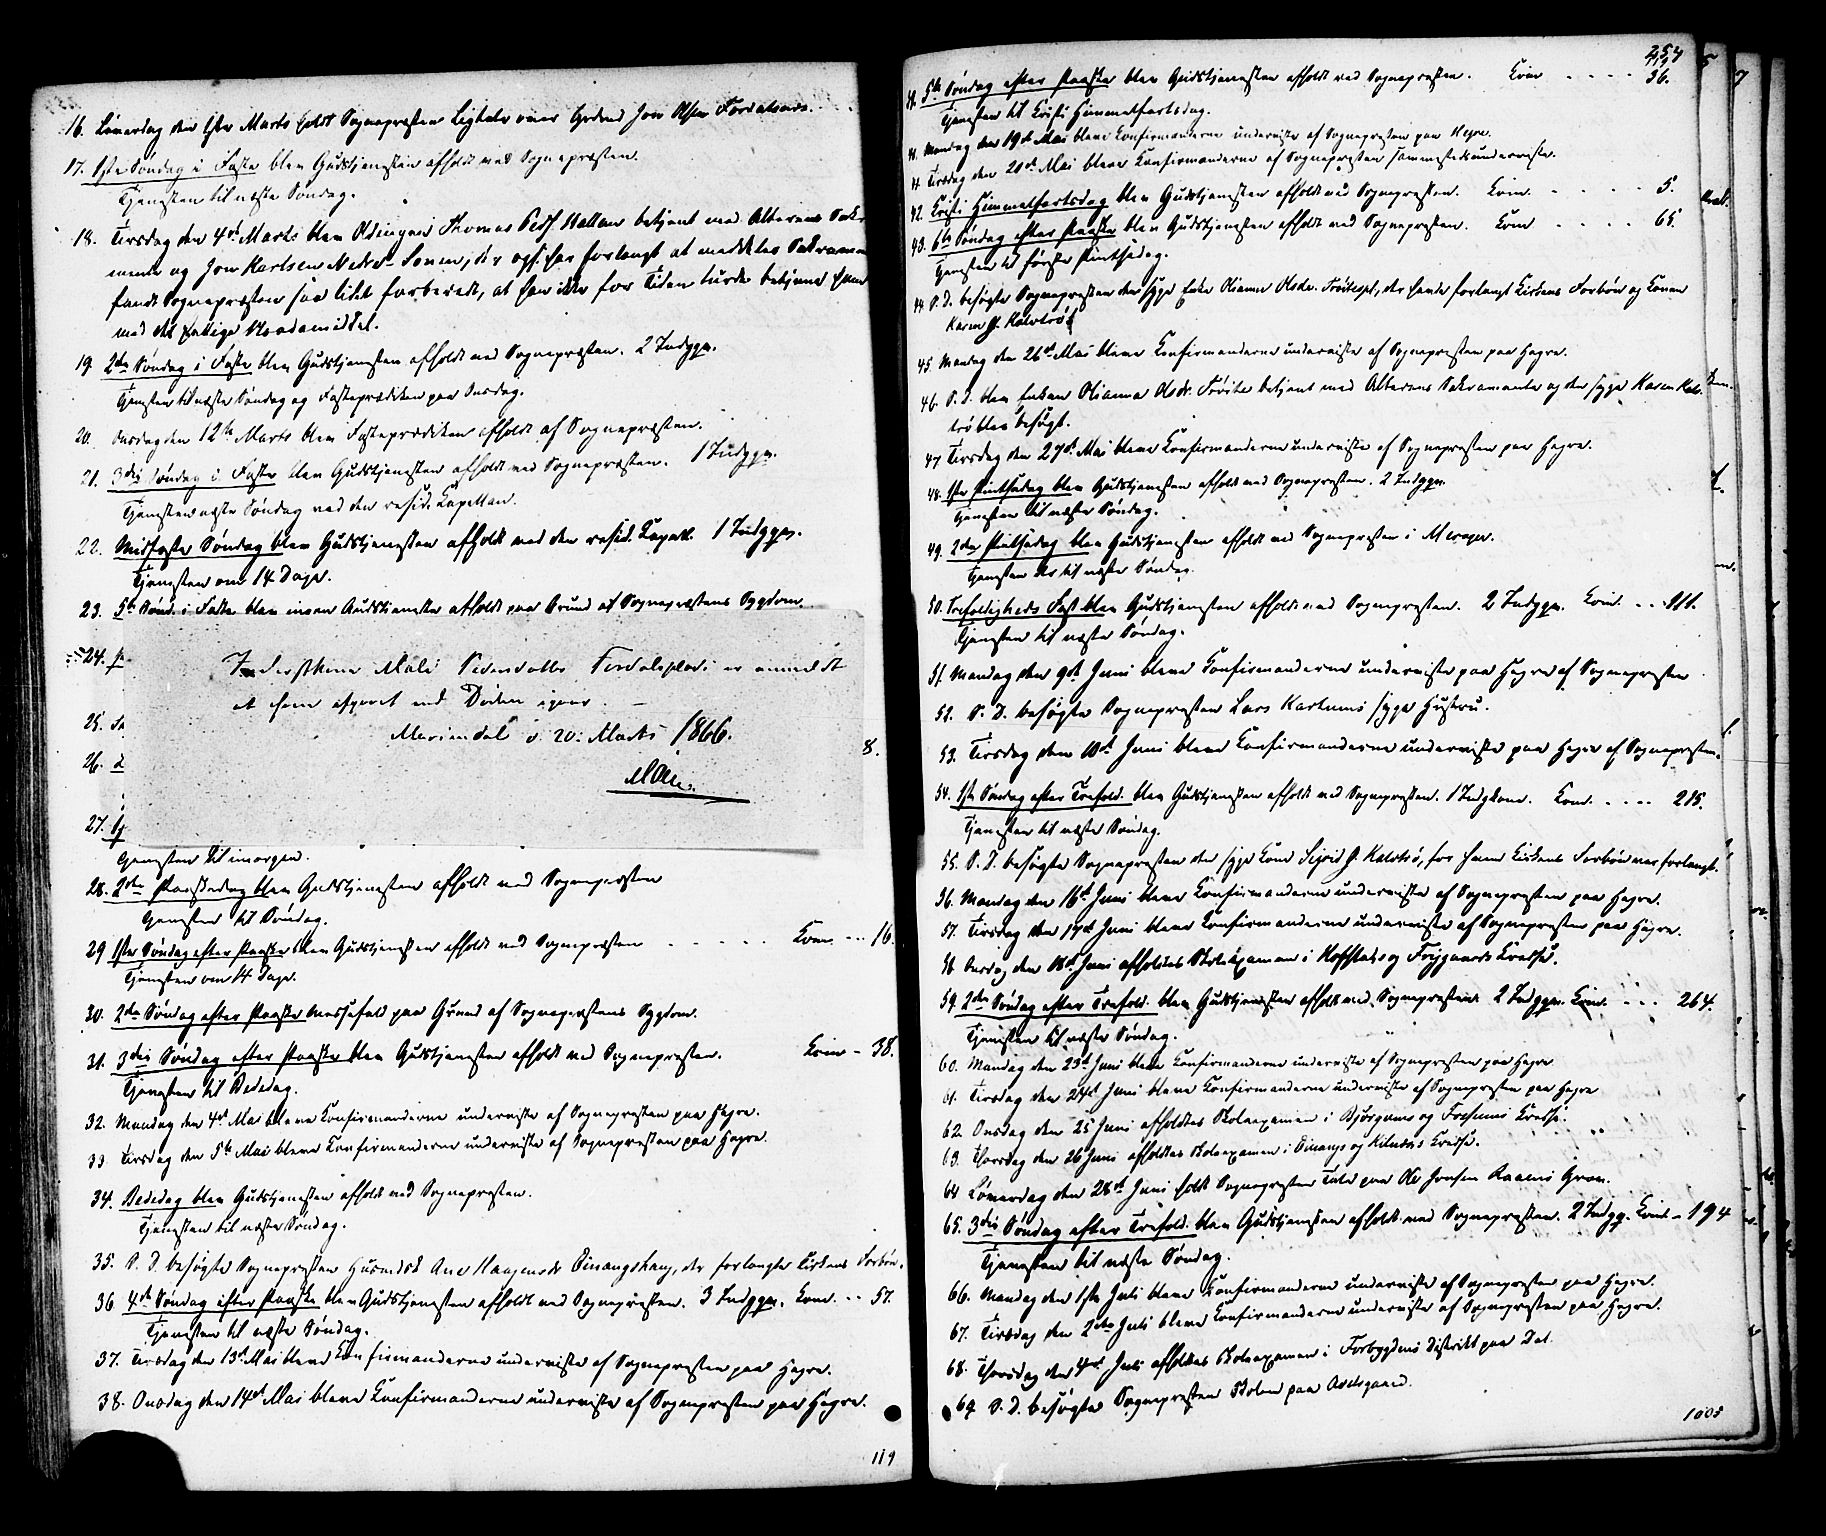 16. Løverdag den 1ste Marts holdt Sognepræsten Ligtale over Jon Olsen
17. 1ste Søndag i Faste blev Gudstjenesten afholdt ved Sognepræsten.
Tjenesten til næste Søndag.
18. Tirsdag den 4de Marts blev Thomas betjent med Alterens Sakra-
mente og Jon Karlsen Nedre- der ogsaa har forlangt at meddeles Sakramen
fandt Sognepræsten saa lidet forberedt, at han ikke for Tiden turde betjene ham
med det hellige Naademiddel.
19. 2den Søndag i Faste blev Gudstjenesten afholdt ved Sognepræsten. 2 Indggn.
Tjenesten til næste Søndag og Fasteprædiken paa Onsdag.
20. Onsdag den 12te Marts blev Fasteprædiken afholdt af Sognepræsten.
21. 3die Søndag i Faste blev Gudstjenesten afholdt ved Sognepræsten. 1 Indggn.
Tjenesten næste Søndag ved den resid. Kapellan.
22. Midfaste Søndag blev Gudstjenesten afholdt ved den resid. Kapell. 1 Indggn.
Tjenesten om 14 Dage.
23. 5te Sønd. i Faste blev ingen Gudstjeneste afholdt paa Grund af Sognepræstens Sygdom.
24.
Mali er anmeldt
at være afgaaet ved Døden igaar.
Mariendal d. 20. Marts 1866.
25.
26.
8.
27.
Tjenesten til imorgen.
28. 2den Paaskedag blev Gudstjenesten afholdt ved Sognepræsten
Tjenesten til Søndag.
29 1ste Søndag efter Paaske blev Gudstjenesten afholdt ved Sognepræsten - - - - - Kom. - - - 16.
Tjenesten om 14 Dage.
30. 2den Søndag efter Paaske Messefald paa Grund af Sognepræstens Sygdom.
31. 3die Søndag efter Paaske blev Gudstjenesten afholdt ved Sognepræsten. Kom - 38.
Tjenesten til Bededag.
32. Mandag den 4de Mai bleve Konfirmanderne underviste af Sognepræsten paa Hegre.
33. Tirsdag den 5te Mai bleve Konfirmanderne underviste af Sognepræsten paa Hegre.
34. Bededag blev Gudstjenesten afholdt ved Sognepræsten.
Tjenesten til næste Søndag.
35. S. D. besøgte Sognepræsten Ane der forlangte Kirkens Forbøn.
36. 4de Søndag efter Paaske blev Gudstjenesten afholdt ved Sognepræsten. 3 Indggn. Kom. - - 57.
Tjenesten til næste Søndag.
37. Tirsdag den 13de Mai bleve Konfirmanderne underviste af Sognepræsten paa Hegre.
38. Onsdag den 14de Mai bleve Konfirmanderne underviste af Sognepræsten paa Hegre.
119
254
5te Søndag efter Paaske blev Gudstjenesten afholdt ved Sognepræsten. Kom - - - - 36.
Tjenesten til Kristi Himmelfartsdag.
Mandag den 19de Mai bleve Konfirmanderne underviste af Sognepræsten paa Hegre.
Tirsdag den 20de Mai bleve Konfirmanderne af Sognepræsten sammesteds underviste.
42. Kristi Himmelfartsdag blev Gudstjenesten afholdt ved Sognepræsten. Kom. - - - - 5.
43. 6te Søndag efter Paaske blev Gudstjenesten afholdt ved Sognepræsten. Kom - - - - 65.
Tjenesten til første Pintsedag.
44. S. D. besøgte Sognepræsten den syge Enke Olianna Olsdr. der havde forlangt Kirkens Forbøn og Konen
Karen
45. Mandag den 26de Mai bleve Konfirmanderne underviste af Sognepræsten paa Hegre.
46. S. D. blev Enken Olianna Olsdr. betjent med Alterens Sakramente og den syge Karen
blev besøgt.
47 Tirsdag den 27de Mai bleve Konfirmanderne underviste af Sognepræsten paa Hegre.
48. 1ste Pintsedag blev Gudstjenesten afholdt ved Sognepræsten. 2 Indggn.
Tjenesten til næste Søndag.
49. 2den Pintsedag blev Gudstjenesten afholdt ved Sognepræsten i Meraker.
Tjenesten der til næste Søndag.
50. Trefoldigheds Fest blev Gudstjenesten afholdt ved Sognepræsten. 2 Indggn. Kom. - - 111.
Tjenesten til næste Søndag.
51. Mandag den 9de Juni bleve Konfirmanderne underviste paa Hegre af Sognepræsten
52. S. D. besøgte Sognepræsten Lars syge Hustru.
53. Tirsdag den 10de Juni bleve Konfirmanderne underviste paa Hegre af Sognepræsten.
54. 1ste Søndag efter Trefold. blev Gudstjenesten afholdt ved Sognepræsten. 1 Indgkone. Kom. - - - - 215.
Tjenesten til næste Søndag.
55. S. D. besøgte Sognepræsten den syge Kone Sigrid for hvem Kirkens Forbøn var forlangt.
56. Mandag den 16de Juni bleve Konfirmanderne underviste af Sognepræsten paa Hegre.
57. Tirsdag den 17de Juni bleve Konfirmanderne underviste af Sognepræsten paa Hegre.
58 Onsdag den 18de Juni afholdtes Skoleexamen i og Kredse.
59. 2den Søndag efter Trefold. blev Gudstjenesten afholdt ved Sognepræsten. 2 Indggn. Kom. - - - 264.
Tjenesten til næste Søndag.
60. Mandag den 23de Juni bleve Konfirmanderne underviste af Sognepræsten paa Hegre
61. Tirsdag den 24de Juni bleve Konfirmanderne underviste af Sognepræsten paa Hegre
62. Onsdag den 25 Juni afholdtes Skoleexamen i og Kredse.
63. Thorsdag den 26 Juni afholdtes Skoleexamen i og Kredse.
64 Løverdag den 28de Juni holdt Sognepræsten Tale paa Ole Jonsen Grav.
65. 3die Søndag efter Trefold. blev Gudstjenesten afholdt ved Sognepræsten. 2 Indgg. Kom. - 194
Tjenesten til næste Søndag.
66. Mandag den 1ste Juli bleve Konfirmanderne underviste af Sognepræsten paa Hegre.
67. Tirsdag den 2den Juli bleve Konfirmanderne underviste af Sognepræsten paa Hegre.
68. Thorsdag den 4de Juli afholdtes Skoleexamen i Forbygdens Distrikt paa Dal.
69. S. D. besøgte Sognepræsten Skolen paa
1005